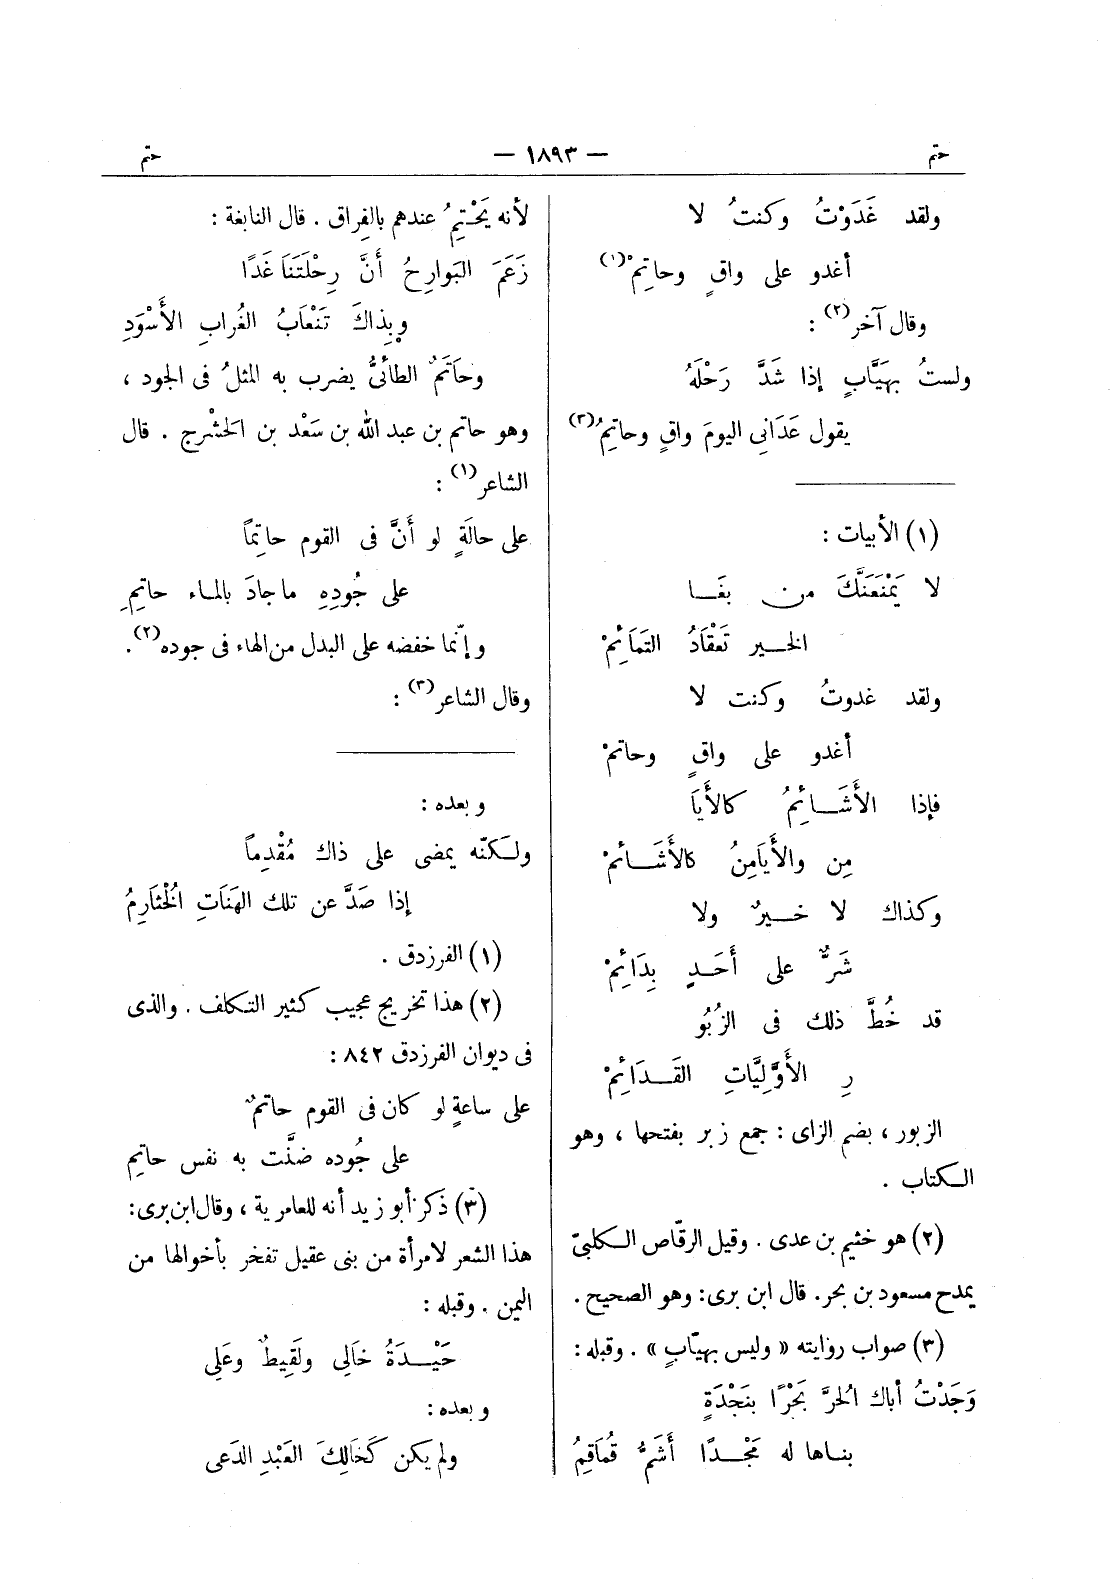 حتم — ١٨٩٣ — حتم
ولقد غَدَوْتُ وكنتُ لا
أغدو على واقٍ وحاتِمْ(١)
وقال آخر(٢) :
ولستُ بهيَّابٍ إذا شَدَّ رَحْلَهُ
يقول عَدَانِى اليومَ واقٍ وحاتِمُ(٣)
(١) الأبيات :
لا يَمْنَعَنَّكَ من بغَـا
الخـير تَعْقَادُ التَمَائِمْ
ولقد غدوتُ وكنت لا
أغدو على واقٍ وحاتمْ
فإذا الأَشَـائِمُ كالأَيَا
مِن والأَيَامِنُ كالأَشَـائمْ
وكذاك لا خـيرٌ ولا
شَرٌّ على أَحَـدٍ بِدَائِمْ
قد خُطَّ ذلك فى الزُبُو
رِ الأَوَّلِيَّاتِ القَـدَائِمْ
الزبور ، بضم الزاى : جمع زبر بفتحها ، وهو
الكتاب .
(٢) هو خثيم بن عدى . وقيل الرقّاص الكلبىّ
يمدح مسعود بن بحر. قال ابن برى: وهو الصحيح .
(٣) صواب روايته « وليس بهيّابٍ » . وقبله :
وَجَدْتُ أباك الحرَّ بَحْرًا بنَجْدَةٍ
بنـاها له مَجْـدًا أَشَمُّ قُمَاقِمُ
لأنه يَحْتِمُ عندهم بالفِراق . قال النابغة :
زَعَمَ البَوارِحُ أَنَّ رِحْلَتَنَا غَدًا
وبِذاكَ تَنْعَابُ الغُرابِ الأَسْوَدِ
وحَاتَمٌ الطائىُّ يضرب به المثلُ فى الجود ،
وهو حاتم بن عبد الله بن سَعْد بن الحَشْرج . قال
الشاعر(١) :
على حالَةٍ لو أَنَّ فى القوم حاتِمًا
على جُودِهِ ما جادَ بالمـاء حاتِمِ
وإنّما خفضه على البدل من الهاء فى جوده(٢).
وقال الشاعر(٣) :
وبعده :
ولـكنّه يمضى على ذاك مُقْدِماً
إذا صَدَّ عن تلك الهَنَاتِ الخُثَارِمُ
(١) الفرزدق .
(٢) هذا تخريج عجيب كثير التكلف . والذى
فى ديوان الفرزدق ٨٤٢ :
على ساعةٍ لو كان فى القوم حاتمٌ
على جُوده ضنَّت به نفس حاتِم
(٣) ذكر أبو زيد أنه للعامرية ، وقال ابن برى:
هذا الشعر لامرأة من بنى عقيل تفخر بأخوالها من
اليمن . وقبله :
حَيْـدَةُ خَالِى ولَقِيطٌ وعَلِى
وبعده :
ولم يكن كَخَالِكَ العَبْدِ الدَعى